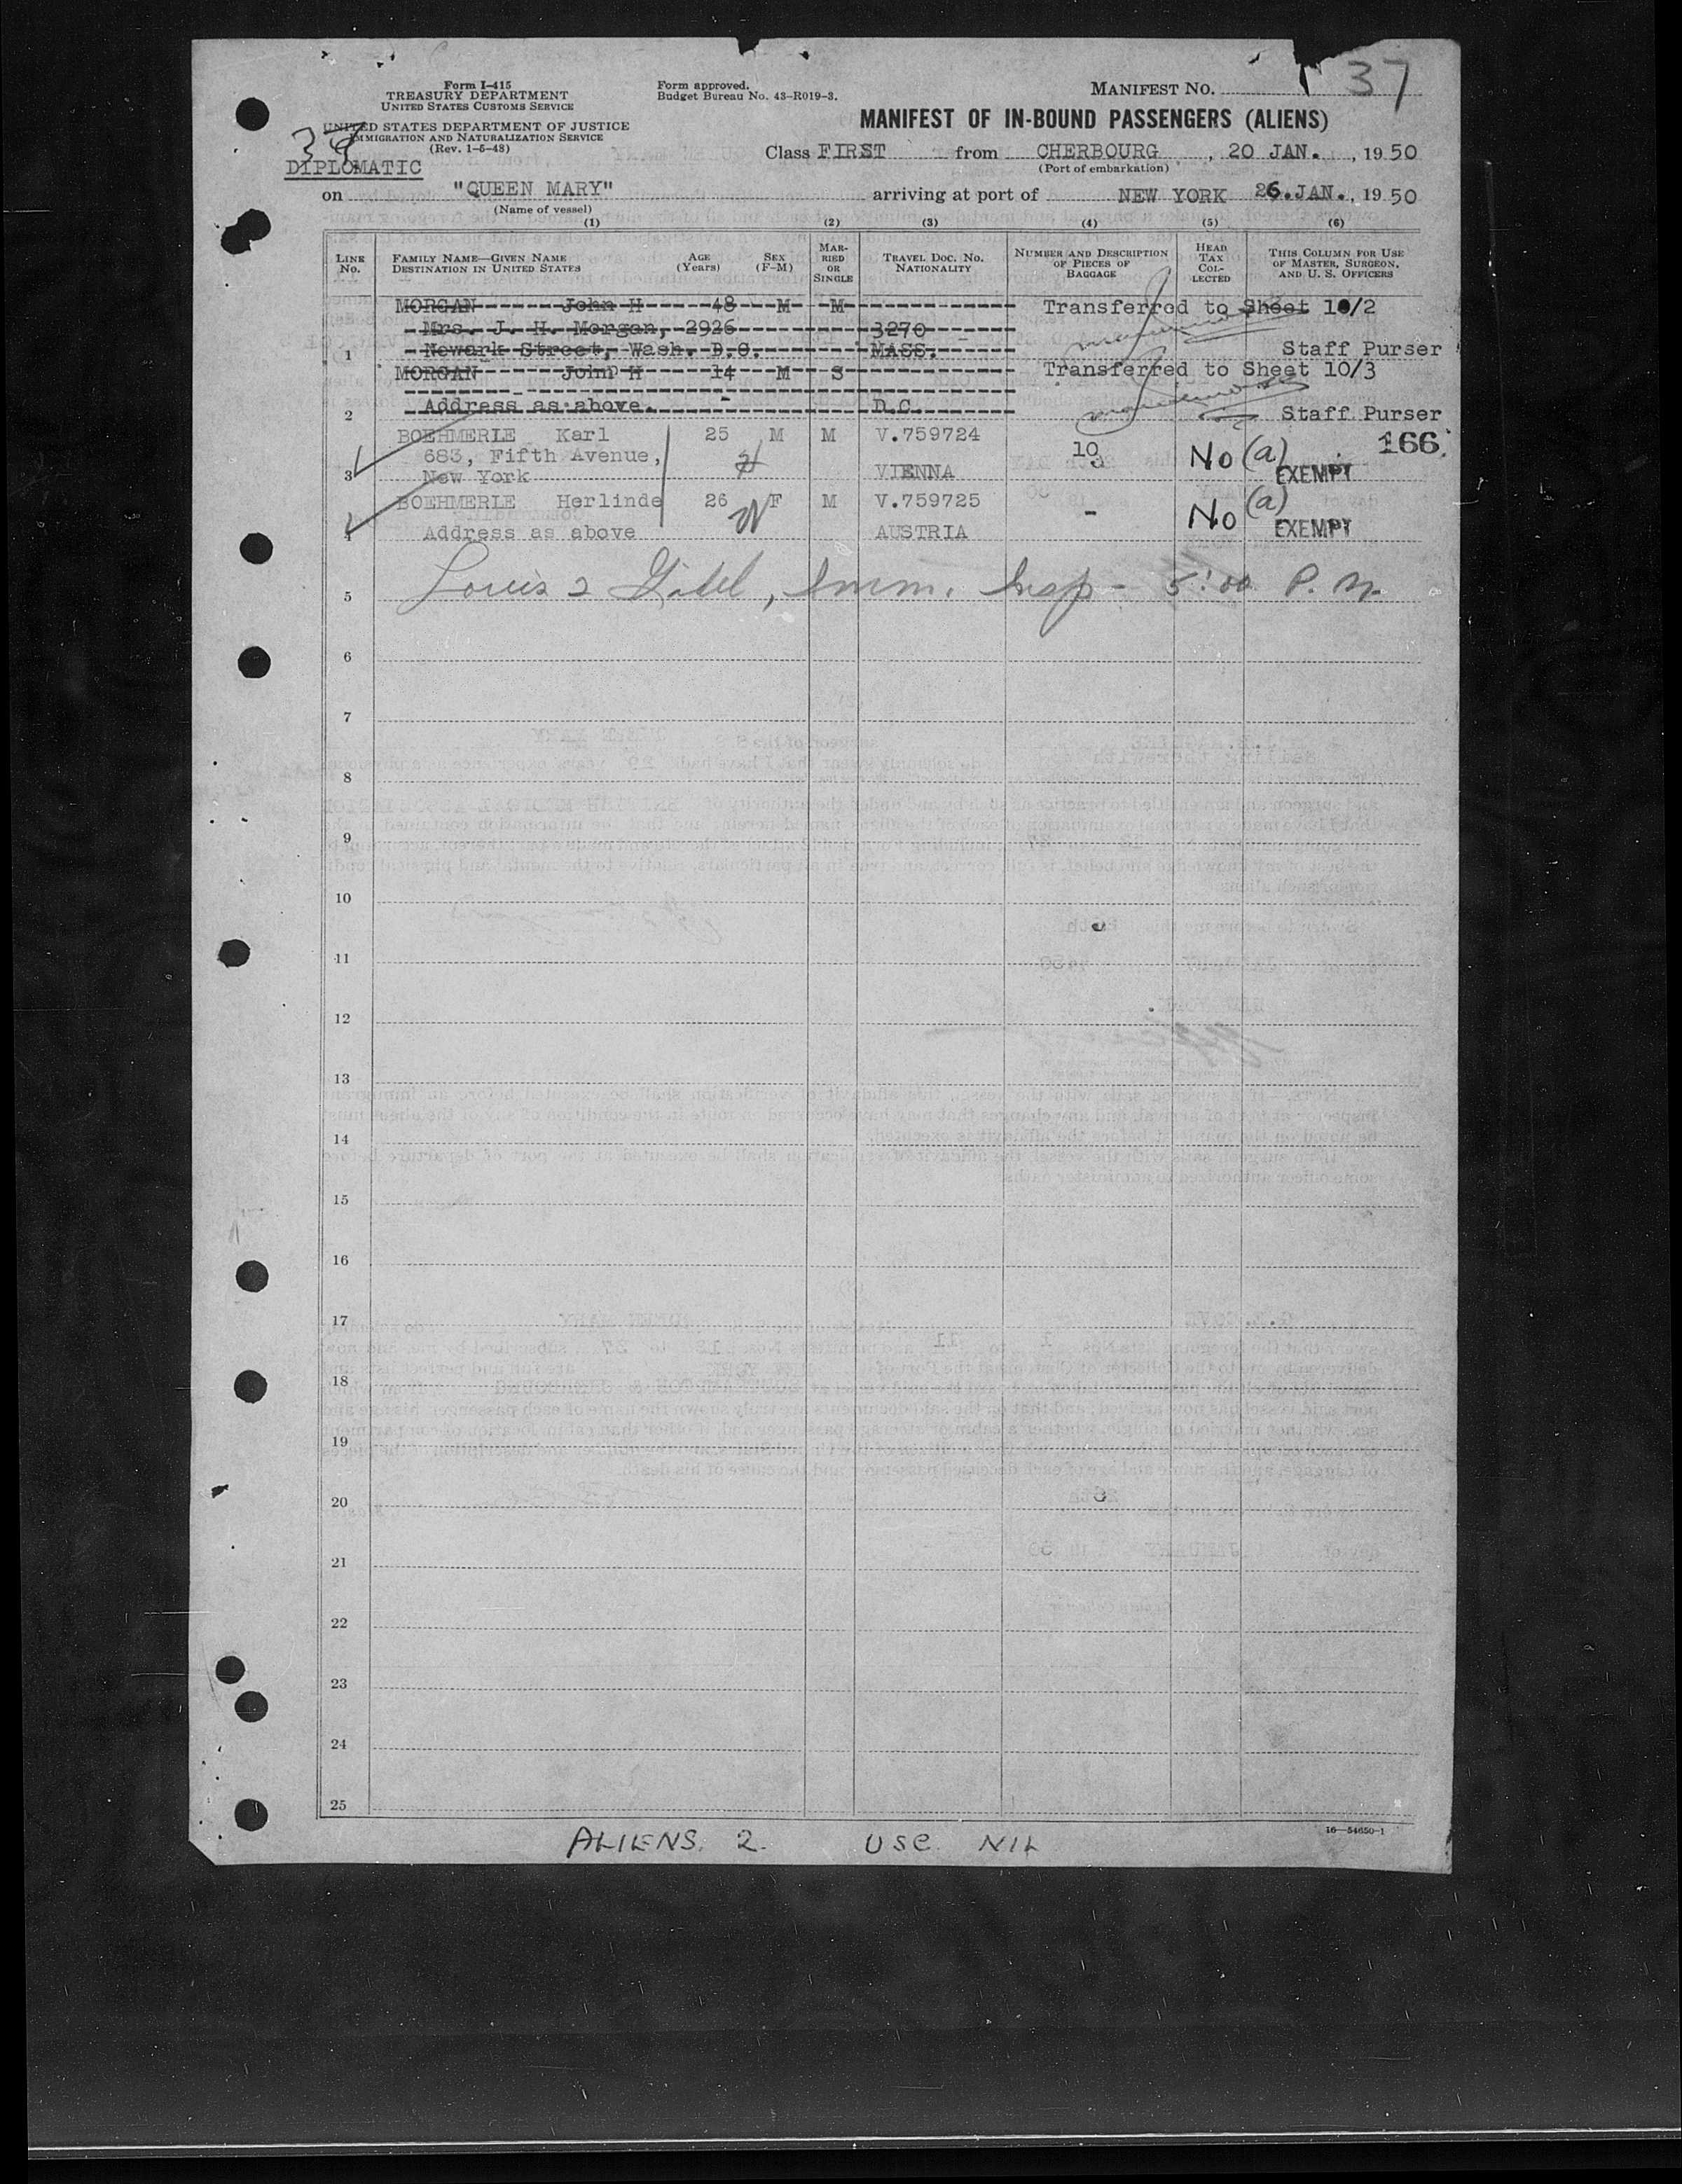 Form I-415
TREASURY DEPARTMENT
UNITED STATES CUSTOMS SERVICE
UNITED STATES DEPARTMENT OF JUSTICE
IMMIGRATION AND NATURALIZATION SERVICE
(Rev. 1-6-48)
DIPLOMATIC
Form approved.
Budget Bureau No. 43-R019-3.
MANIFEST NO. 37
MANIFEST OF IN-BOUND PASSENGERS (ALIENS)
Class FIRST from CHERBOURG, 20 JAN., 1950
(Port of embarkation)
on "QUEEN MARY" arriving at port of NEW YORK 26.JAN., 1950
(Name of vessel)
(1) (2) (3) (4) (5) (6)
LINE No. FAMILY NAME—GIVEN NAME DESTINATION IN UNITED STATES AGE (Years) SEX (F-M) MARRIED OR SINGLE TRAVEL DOC. NO. NATIONALITY NUMBER AND DESCRIPTION OF PIECES OF BAGGAGE HEAD TAX COLLECTED THIS COLUMN FOR USE OF MASTER, SURGEON, AND U. S. OFFICERS
MORGAN John H 48 M M Transferred to Sheet 10/2
Mrs. J. H. Morgan, 2926 3270
1 Newark Street, Wash. D.C. MASS. Staff Purser
MORGAN John H 14 M S Transferred to Sheet 10/3
2 Address as above. D.C. Staff Purser
BOEHMERLE Karl 25 M M V.759724 166
683, Fifth Avenue, 10 No (a)
3 New York VIENNA EXEMPT
BOEHMERLE Herlinde 26 F M V.759725 - No (a)
4 Address as above AUSTRIA EXEMPT
5 Louis Imm. Insp - 5:00 P.M.
6
7
8
9
10
11
12
13
14
15
16
17
18
19
20
21
22
23
24
25
16—54650-1
ALIENS. 2. USC. NIL